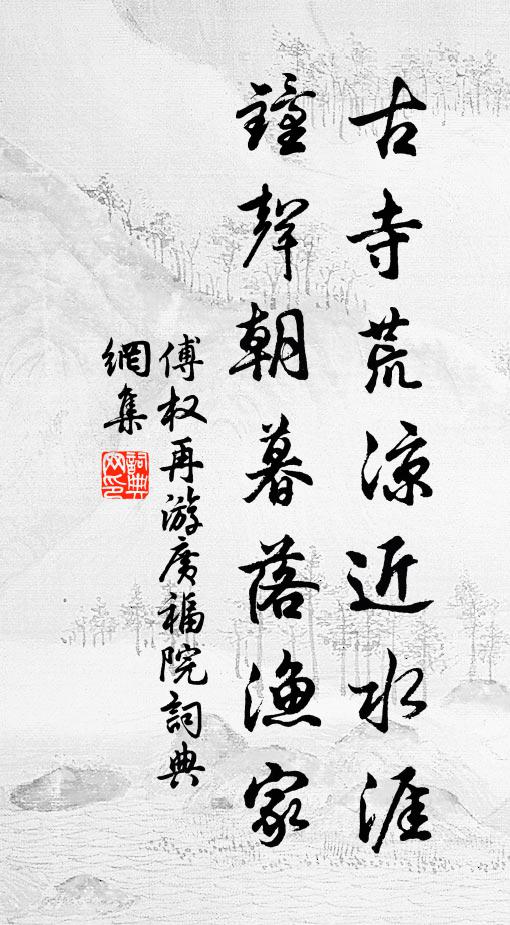 古寺荒涼近水涯
鐘聲朝暮落漁家
傅权再游廣福院詞典
網集
詞典網印